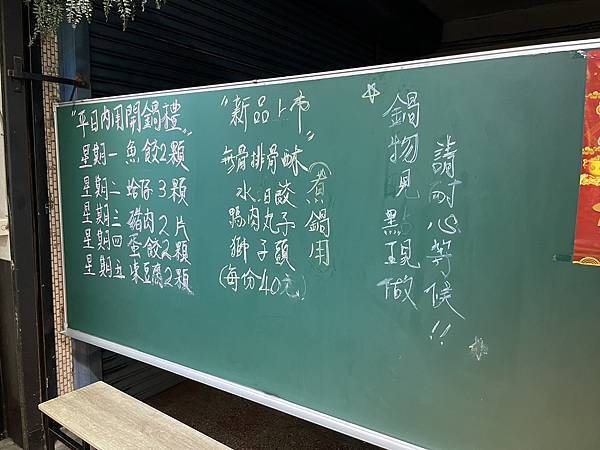 "平日內用開鍋禮"
星期一 魚餃2顆
星期二 蛤仔3顆
星期三 豬肉2片
星期四 蛋餃2顆
星期五 凍豆腐2顆
"新品上市"
無骨排骨酥
水晶餃
鴨肉丸子
獅子頭
(每份40元)
煮鍋用
鍋物見點現做
請耐心等候!!